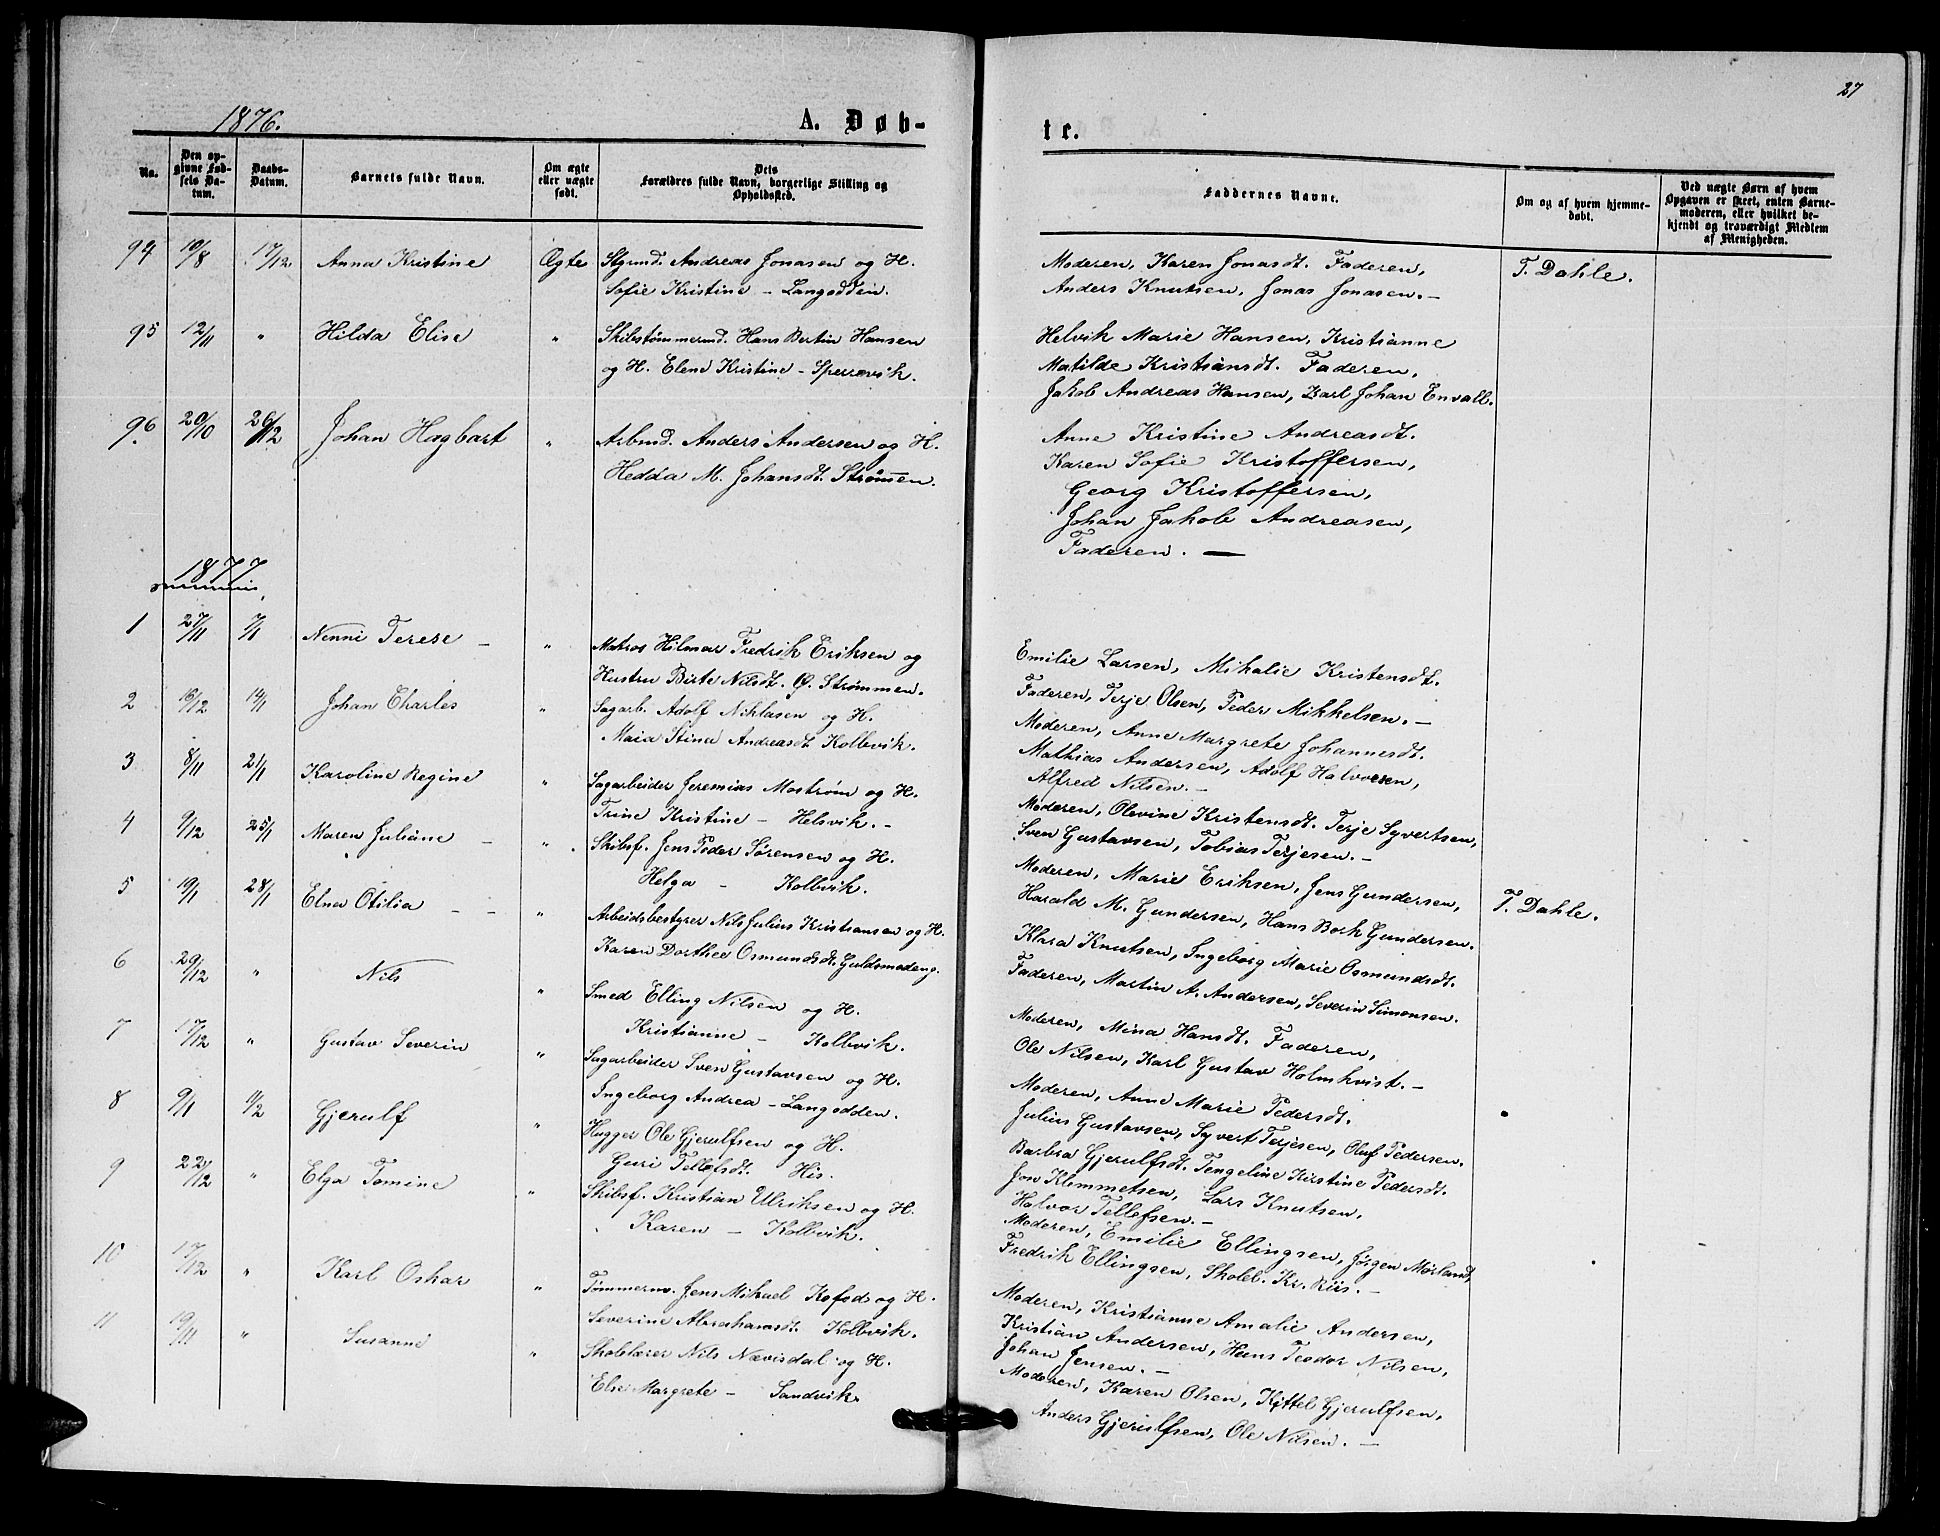 1876.
A. Døb-
No.
Den op-
givne Fød-
sels Da-
tum.
Daabs-
Datum.
Barnets fulde Navn.
Om ægte
eller uægte
født.
Dets
Forældres fulde Navn, borgerlige Stilling og
Opholdssted.
94 10/8 17/12 Anna Kristine Ægte Styrmd. Andreas Jonasen og H.
Sofie Kristine - Langodden.
95 12/11 " Hilda Elise " Skibstømmermd. Hans Bertin Hansen
og H. Elene Kristine - Sperrevik.
96. 20/10 26/12 Johan Hagbart " Arbmd. Anders Andersen og H.
Hedda M. Johansdt. Strømmen.
1877
1 27/11 7/1 Nenni Terese - " Matros Hilmar Fredrik Eriksen og
Hustru Birte Nilsdt. Ø. Strømmen.
2 16/12 14/1 Johan Charles " Sagarb. Adolf Niklasen og H.
Maia Stina Andreasdt. Kolbvik.
3 8/11 21/1 Karoline Regine " Sagarbeider Jeremias Mostrøm og H.
Trine Kristine - Helsvik. -
4 9/12 25/1 Maren Juliane - " Skibsf. Jens Peder Sørensen og H.
Helga - Kolbvik.
5 19/1 28/1 Elna Otilia - - " Arbeidsbestyrer Nils Julius Kristiansen og H.
Karen Dorthee Osmundsdt. Guldsmedeng.
6 29/12 " Nils " Smed Elling Nilsen og H.
Kristianne - Kolbvik.
7 17/12 " Gustav Severin " Sagarbeider Sven Gustavsen og H.
Ingeborg Andrea - Langodden.
8 9/1 11/2 Gjerulf " Hugger Ole Gjerulfsen og H.
Guri Tellefsdt. His.
9 22/12 " Elga Tomine " Skibsf. Kristian Ulriksen og H.
Karen - Kolbvik.
10 17/12 " Karl Oskar " Tømmerm. Jens Mikael Kofod og H.
Severine Abrahamsdt. Kolbvik.
11 19/11 " Susanne " Skolelærer Nils Nævisdal og H.
Else Margrete - Sandvik.
27
te.
Faddernes Navne.
Om og af hvem hjemme-
døbt.
Ved uægte Børn af hvem
Opgaven er skeet, enten Barne-
moderen, eller hvilket be-
kjendt og troværdigt Medlem
af Menigheden.
Moderen, Karen Jonasdt. Faderen, T. Dahle.
Anders Knutsen, Jonas Jonasen. -
Helvik Marie Hansen, Kristianne
Matilde Kristiansdt. Faderen,
Jakob Andreas Hansen, Karl Johan Envall.
Anne Kristine Andreasdt.
Karen Sofie Kristoffersen,
Georg Kristoffersen,
Johan Jakob Andreasen,
Faderen. -
Emilie Larsen, Mikalie Kristensdt.
Faderen, Terje Olsen, Peder Mikkelsen. -
Moderen, Anne Margrete Johannesdt.
Mathias Andersen, Adolf Halvorsen,
Alfred Nilsen. -
Moderen, Olevine Kristensdt. Terje Syvertsen,
Sven Gustavsen, Tobias Terjesen. -
Moderen, Marie Eriksen, Jens Gundersen,
Harald M. Gundersen, Hans Bork Gundersen. T. Dahle.
Klara Knutsen, Ingeborg Marie Osmundsdt.
Faderen, Martin A. Andersen, Severin Simonsen.
Moderen, Mina Hansdt. Faderen,
Ole Nilsen, Karl Gustav Holmkvist. -
Moderen, Anne Marie Pedersdt.
Julius Gustavsen, Syvert Terjesen, Oluf Pedersen.
Barbra Gjerulfsdt. Tengeline Kirstine Pedersdt.
Jon Klemmetsen, Lars Knutsen,
Halvor Tellefsen. -
Moderen, Emilie Ellingsen, Jørgen Mørland,
Fredrik Ellingsen, Skoleb. Kr. Riis. -
Moderen, Kristianne Amalie Andersen,
Kristian Andersen, Hans Teodor Nilsen,
Johan Jensen. -
Moderen, Karen Olsen, Kittel Gjerulfsen,
Anders Gjerulfsen, Ole Nilsen. -